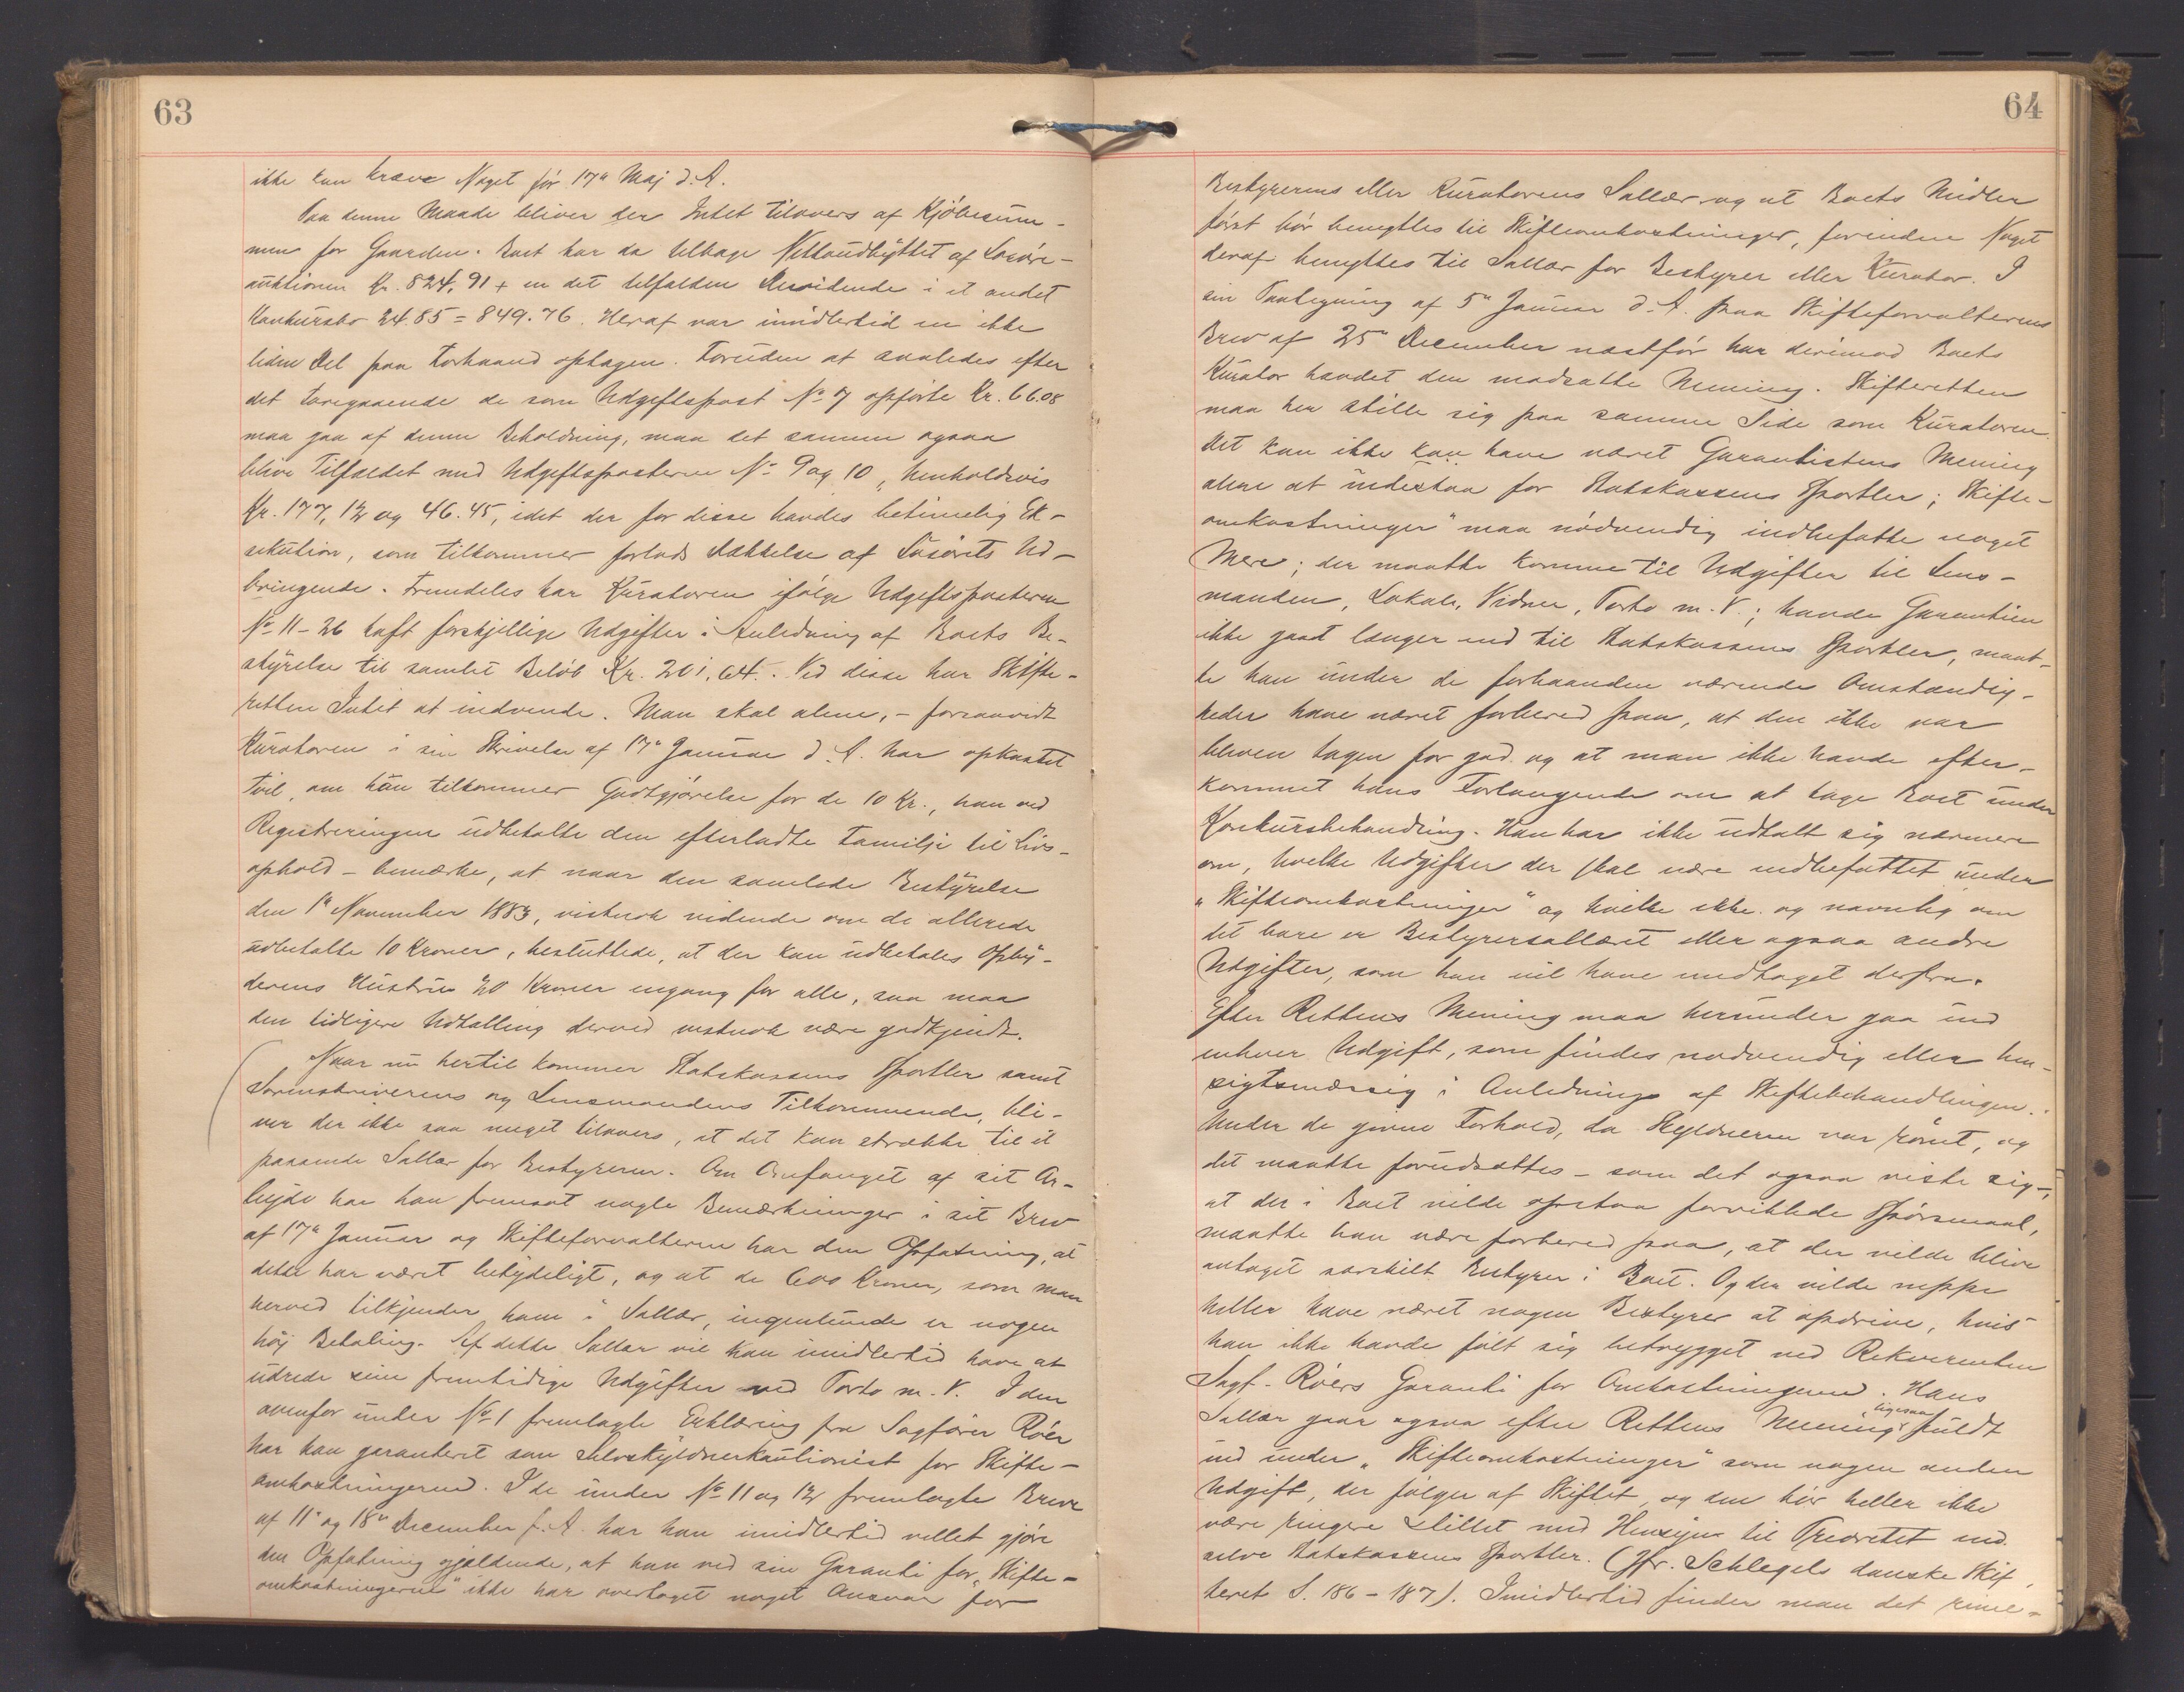 63
ikke kan kræve Noget før 17de Maj d. A.
Paa denne Maade bliver der Intet tilovers af Kjøbesum-
men for Gaarden. Boet har da tilbage Nettoudbyttet af Løsøre-
auktionen Kr. 824,91 + en det tilfalden Dividende i et andet
Konkursbo 24.85 = 849.76. Heraf var imidlertid en ikke
liden Del paa Forhaand optagen. Foruden at saaledes efter
det Foregaaende de som Udgiftspost No 7 opførte Kr. 66.08
maa gaa af denne Beholdning, maa det samme ogsaa
blive Tilfældet med Udgiftsposterne No 9 og 10, henholdsvis
Kr. 177,12 og 46.45, idet der for disse havdes betimelig Ek-
sekution, som tilkommer forlods Dækkelse af Løsørets Ud-
bringende. Fremdeles har Kuratoren ifølge Udgiftsposterne
No 11-26 haft forskjellige Udgifter i Anledning af Boets Be-
styrelse til samlet Beløb Kr. 201,64. Ved disse har Skifte-
retten Intet at indvende. Man skal alene, - forsaavidt
Kuratoren i sin Skrivelse af 17de Januar d. A. har opkastet
Tvil, om han tilkommer Godtgjørelse for de 10 Kr., han ved
Registreringen udbetalte den efterladte Familje til Livs-
ophold - bemærke, at naar den samlede Bestyrelse
den 1ste November 1883, vistnok vidende om de allerede
udbetalte 10 Kroner, besluttede, at der kan udbetales Opby-
derens Hustru 20 Kroner engang for alle, saa maa
den tidligere Udtælling derved vistnok være godkjendt.
Naar nu hertil kommer Statskassens Sportler samt
Sorenskriverens og Lensmandens Tilkommende, bli-
ver der ikke saa meget tilovers, at det kan strække til et
passende Sallær for Bestyreren. Om Omfanget af sit Ar-
bejde har han fremsat nogle Bemærkninger i sit Brev
af 17de Januar og Skifteforvalteren har den Opfatning, at
dette har været betydeligt, og at de 600 Kroner, som man
herved tilkjender ham i Sallær, ingenlunde er nogen
høj Betaling. Af dette Sallær vil han imidlertid have at
udrede sine fremtidige Udgifter ved Porto m. V. I den
ovenfor under No 1 fremlagte Erklæring fra Sagfører Röer
har han garanteret som Selvskyldnerkautionist for Skifte-
omkostningerne. I de under No 11 og 12 fremlagte Breve
af 11te og 18de December f. A. har han imidlertid villet gjøre
den Opfatning gjældende, at han ved sin Garanti for "Skifte-
omkostningerne" ikke har overtaget noget Ansvar for
64
Bestyrerens eller Kuratorens Sallær, og at Boets Midler
først bør benyttes til Skifteomkostninger, forinden Noget
deraf benyttes til Sallær for Bestyrer eller Kurator. I
sin Paategning af 5te Januar d. A. paa Skifteforvalterens
Brev af 25de December næstfør har derimod Boets
Kurator hævdet den modsatte Mening. Skifteretten
maa her stille sig paa samme Side som Kuratoren.
Det kan ikke kan have været Garantistens Mening
alene at indestaa for Statskassens Sportler; Skifte-
omkostninger" maa nødvendig indbefatte noget
Mere; der maatte komme til Udgifter til Lens-
manden, Lokale, Vidner, Porto m. V.; havde Garantien
ikke gaat længer end til Statskassens Sportler, maat-
te han under de forhaanden værende Omstændig-
heder have været forbered paa, at den ikke var
bleven tagen for god og at man ikke havde efter-
kommet hans Forlangende om at tage Boet under
Konkursbehandling. Han har ikke udtalt sig nærmere
om, hvilke Udgifter der skal være indbefattet under
"Skifteomkostninger" og hvilke ikke og navnlig om
det bare er Bestyrersallæret eller ogsaa andre
Udgifter, som han vil have undtaget derfra.
Efter Rettens Mening maa herunder gaa ind
enhver Udgift, som findes nødvendig eller hen-
sigtsmæssig i Anledning af Skiftebehandlingen.
Under de givne Forhold, da Skyldneren var rømt, og
det maatte forudsættes - som det ogsaa viste sig -,
at der i Boet vilde opstaa forviklede Spørsmaal,
maatte han være forbered paa, at der vilde blive
antaget særskilt Bestyrer i Boet. Og der vilde neppe
heller have været nogen Bestyrer at opdrive, hvis
han ikke havde følt sig betrygget ved Rekvirenten
Sagf. Röers Garanti for Omkostningerne. Hans
Sallær gaar ogsaa efter Rettens Mening ligesaa fuldt
ind under "Skifteomkostninger" som nogen anden
Udgift, der følger af Skiftet, og den bør heller ikke
være ringere stillet med Hensyn til Prioritet end
selve Statskassens Sportler. (Jfr. Schlegels danske Skif-
teret S. 186-187). Imidlertid finder man det rime-